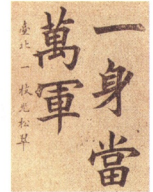 一身當
萬軍
臺北一枝光松草